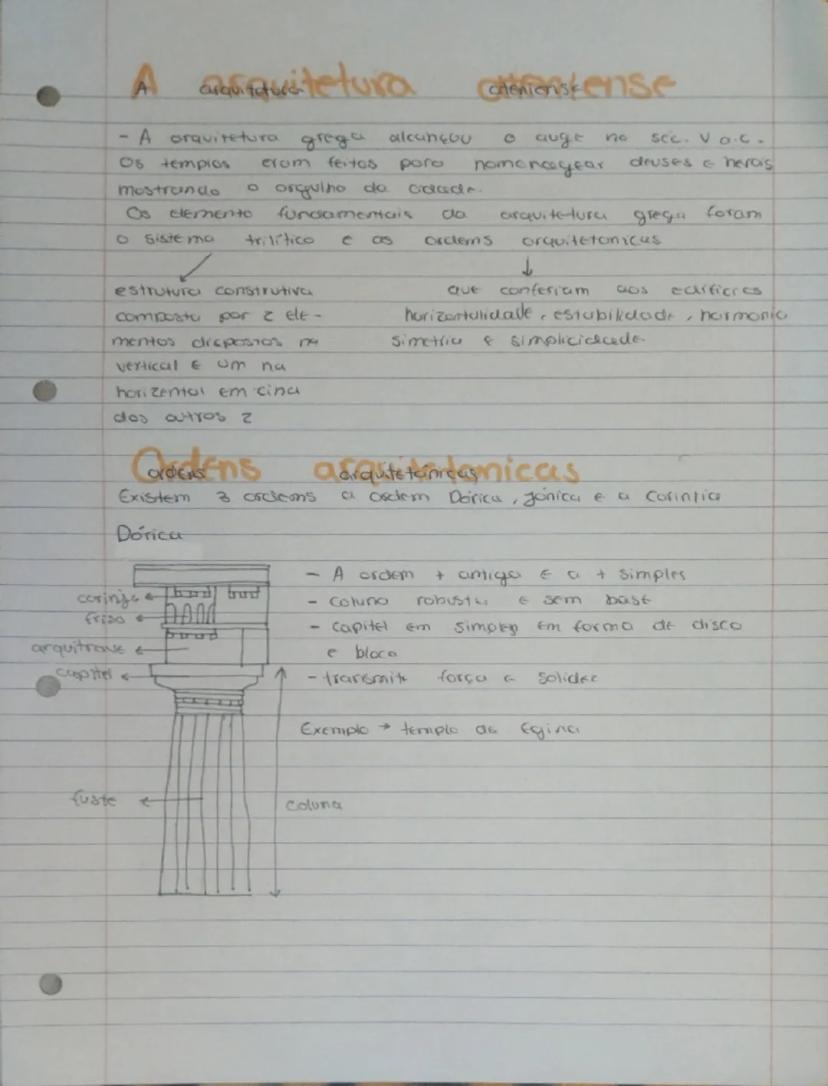 A arquitetura ateniense
- A arquitetura grega alcançou o auge no séc. V a.C.
Os templos eram feitos para homenagear deuses e heróis
mostrando o orgulho da cidade.
Os elemento fundamentais da arquitetura grega foram
o sistema trilítico e as ordems arquitetonicas
estrutura construtiva
composta por 2 ele-
mentos dispostos na
vertical e um na
horizental em cima
dos outros 2
que conferiam aos edifícios
horizontalidade, estabilidade, harmonia
simetria e simplicidade
Ordens arquitetónicas
Existem 3 ordens a ordem Dórica, jónica e a Coríntia
Dórica
- A ordem + antiga e a + simples
- coluna robusta e sem base
- capitel em simples em forma de disco
e bloco
- transmite força e solidez
Exemplo → templo de Egina
cornija
friso
arquitrave
capitel
fuste
coluna